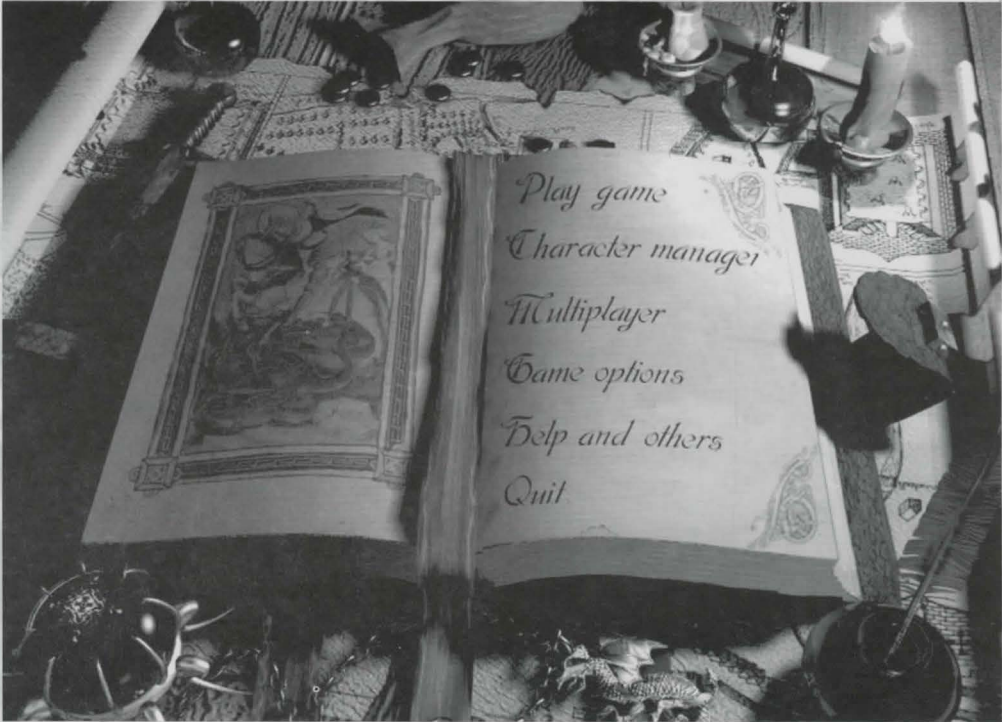 Play game
Character manager
Multiplayer
Game options
Help and others
Quit